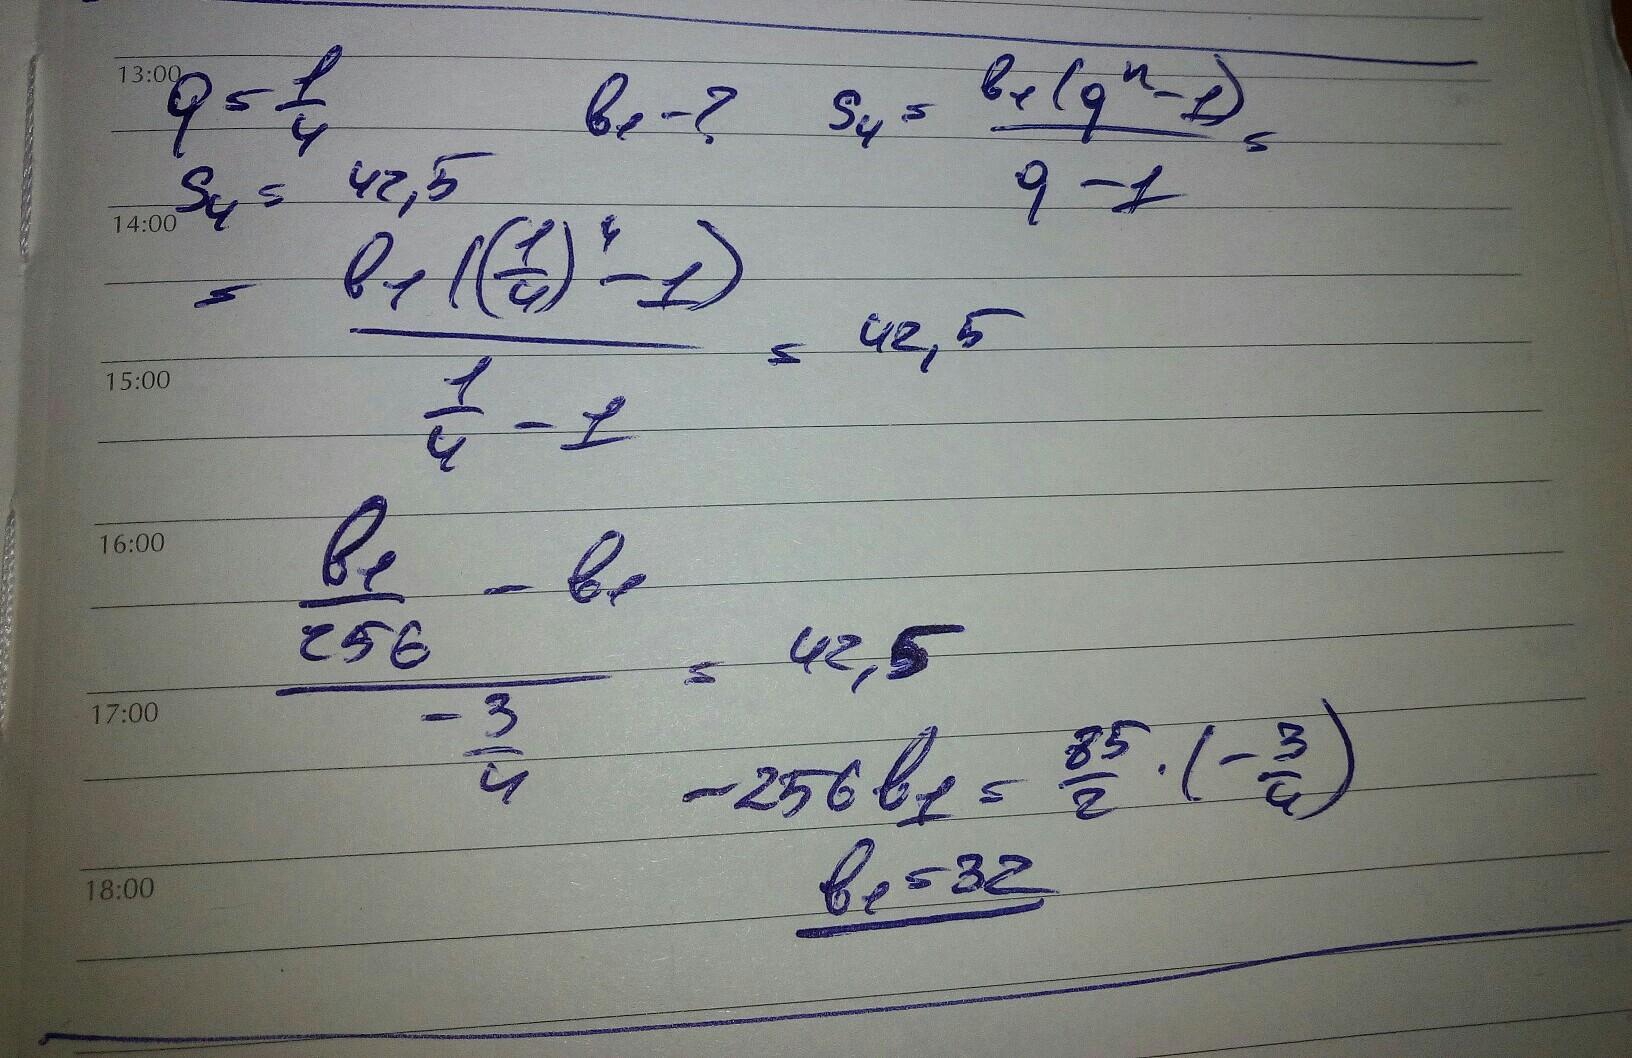 13:00
q = 1/4    b₁ - ?    S₄ = b₁(qⁿ - 1) / q - 1 =
S₄ = 42,5
14:00
= b₁((1/4)⁴ - 1) / 1/4 - 1 = 42,5
15:00
16:00
b₁/256 - b₁ / -3/4 = 42,5
17:00
-256b₁ = 85/2 · (-3/4)
18:00
b₁ = 32